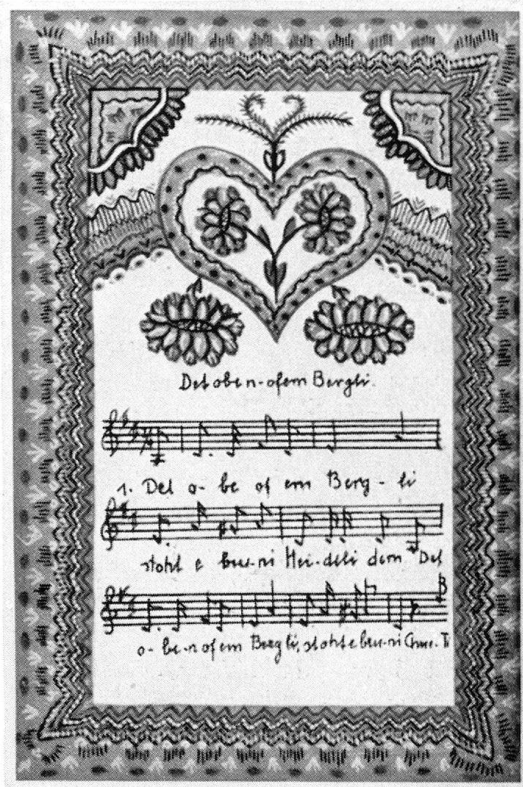 Det oben-ofem Bergli.
1. Det o- be of em Berg - li
stoht e bru-ni Hei-deli dem Det
o- be-n of em Bergli, stoht e bru-ni Chue.